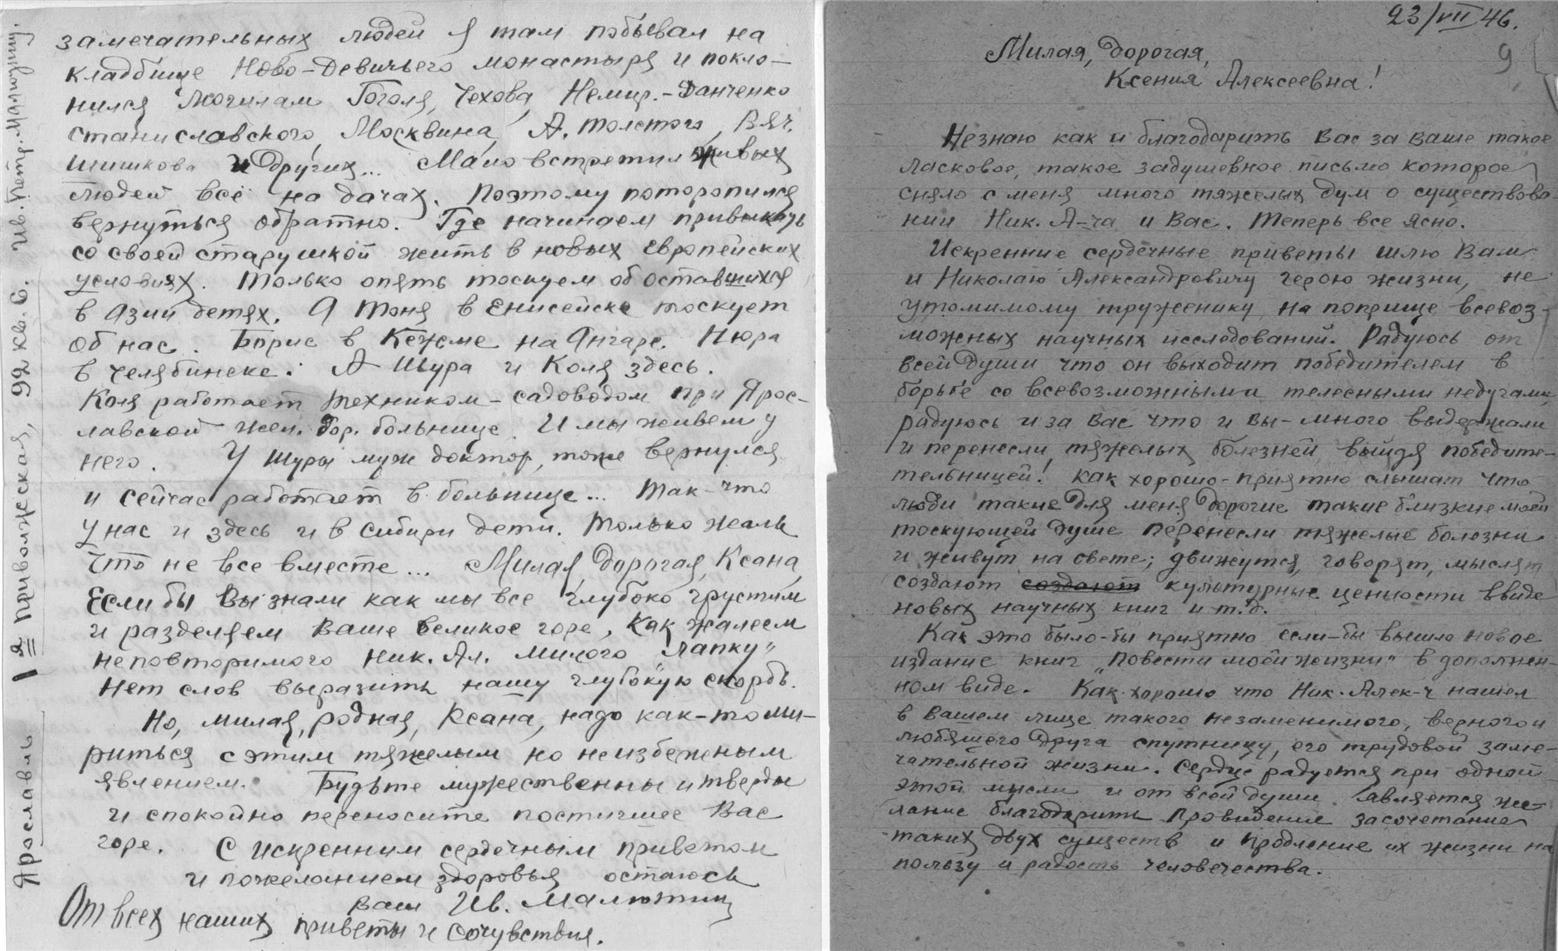 замечательных людей я там побывал на
кладбище Ново-Девичьего монастыря и покло-
нился могилам Гоголя, Чехова, Немир.-Данченко
станиславского, Москвина, А. Толстого, Вяч.
Шишкова и других... Мало встретил живых
людей всё на дачах. Поэтому поторопился
вернуться обратно. Где начинаем привыкать
со своей старушкой жить в новых европейских
условиях. Только опять тоскуем об оставшихся
в Азии детях. А Тоня в Енисейске тоскует
об нас. Борис в Кежме на Ангаре. Нюра
в Челябинске. А Шура и Коля здесь.
Коля работает техником-садоводом при Ярос-
лавской жел. дор. больнице. И мы живем у
него. У Шуры муж доктор, тоже вернулся
и сейчас работает в больнице... Так-что
у нас и здесь и в Сибири дети. Только жаль
что не все вместе... Милая, дорогая, Ксана,
Если бы Вы знали как мы все глубоко грустим
и разделяем Ваше великое горе, как жалеем
неповторимого Ник. Ал. милого "Лапку"
Нет слов выразить нашу глубокую скорбь.
Но, милая, родная, Ксана, надо как-то ми-
риться с этим тяжелым но неизбежным
явлением. Будьте мужественны и тверды
и спокойно переносите постигшее Вас
горе. С искренним сердечным приветом
и пожеланием здоровья остаюсь
Ваш Ив. Малютин
От всех наших приветы и сочувствия.
Ярославль 1я Приволжская, 92 кв. 6. Ив. Петр. Малютину.
23/VII 46.
9
Милая, дорогая,
Ксения Алексеевна!
Незнаю как и благодарить Вас за ваше такое
ласковое, такое задушевное письмо которое
сняло с меня много тяжелых дум о существова-
нии Ник. А-ча и Вас. Теперь все ясно.
Искренние сердечные приветы шлю Вам
и Николаю Александровичу герою жизни, не
утомимому труженику на поприще всевоз-
можных научных исследований. Радуюсь от
всей души что он выходит победителем в
борьбе со всевозможными телесными недугами,
радуюсь и за Вас что и вы-много выдержали
и перенесли тяжелых болезней выйдя победите-
тельницей! Как хорошо-приятно слышат что
люди такие для меня дорогие такие близкие моей
тоскующей душе перенесли тяжелые болезни
и живут на свете; движутся, говорят, мыслят
создают создают культурные ценности ввиде
новых научных книг и т.д.
Как это было-бы приятно если-бы вышло новое
издание книг "Повести моей жизни" в дополнен-
ном виде. Как хорошо что Ник. Алек-ч нашел
в Вашем лице такого незаменимого, верного и
любящего друга спутницу, его трудовой заме-
чательной жизни. Сердце радуется при одной
этой мысли и от всей души является же-
лание благодарить Провидение за сочетание
таких двух существ и продление их жизни на
пользу и радость человечества.